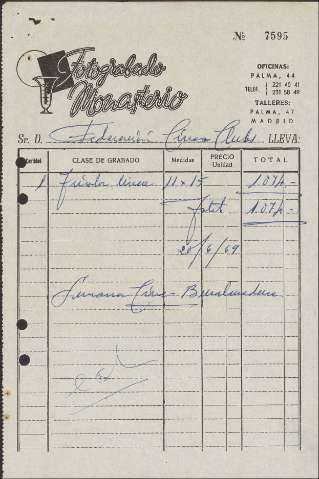 Nº 7595
Fotograbado
Monasterio
OFICINAS:
PALMA, 44
TELEF. 221 40 41
231 58 49
TALLERES:
PALMA, 47
MADRID
Sr. D. Federación Cines Clubs LLEVA:
Cantidad CLASE DE GRABADO Medidas PRECIO Unidad TOTAL
1 línea 11 x 15 107,-
Total 107,-
20/6/69
Semana Cine